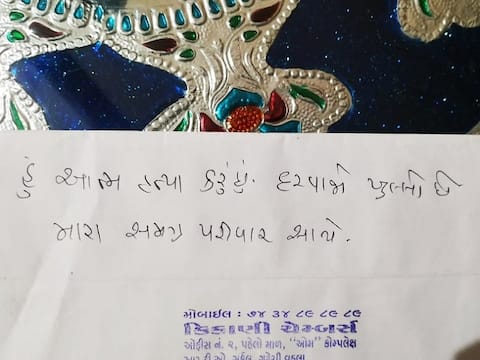 હું આત્મ હત્યા કરું છું. દરવાજો ખુલ્લો છે
મારા સમગ્ર પરીવાર આવો.
મોબાઈલ : ૭૪ ૩૪ ૮૯ ૮૯ ૮૯
ડિકાણી ચેમ્બર્સ
ઓફીસ નં. ૨, પહેલો માળ, "ઓમ" કોમ્પલેક્ષ